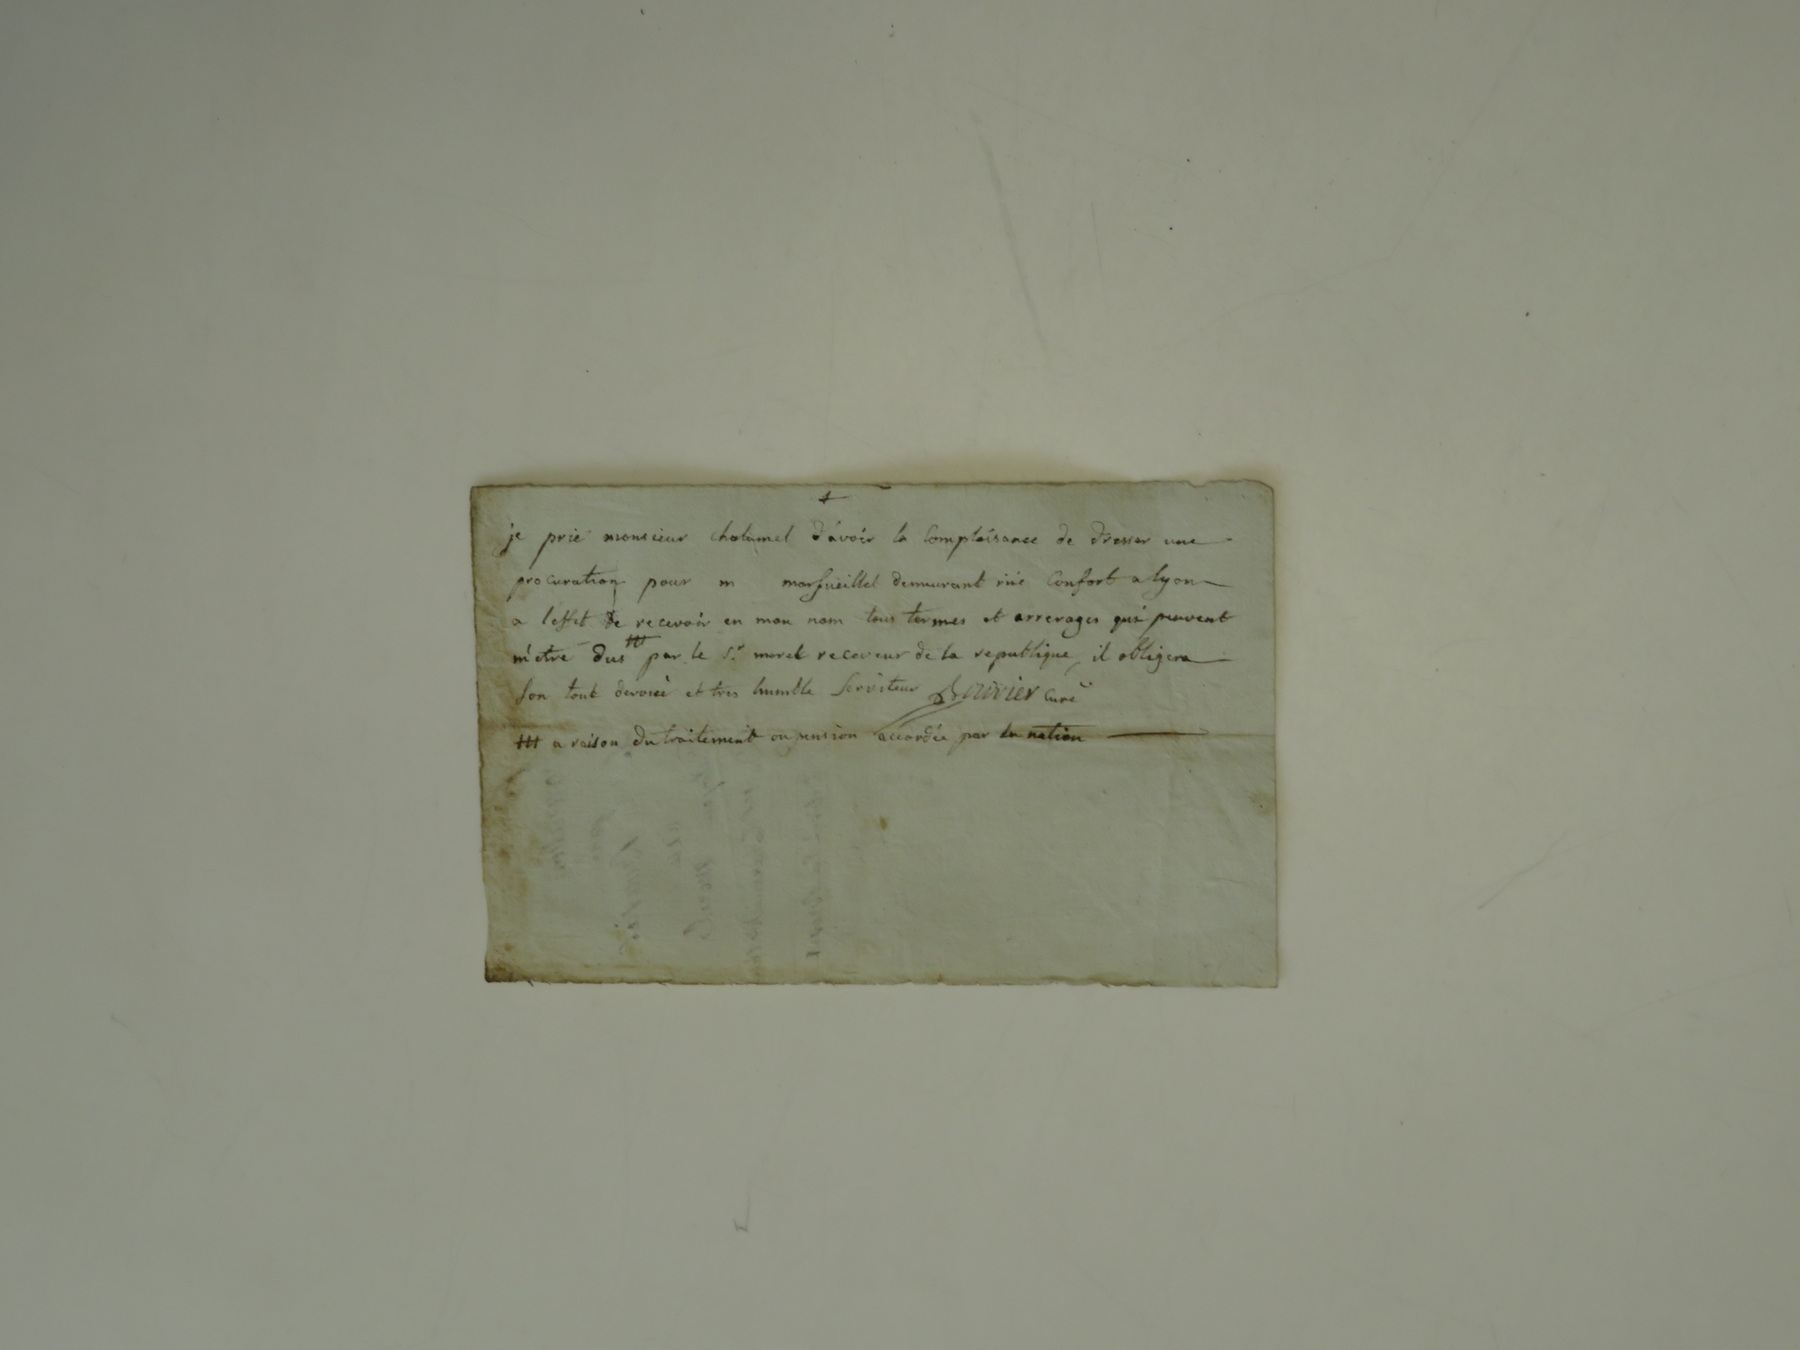 je prie monsieur chalamel d'avoir la Complaisance de dresser une
procuration pour m marsueillet demeurant rüe Confort a lyon
a l'effet de recevoir en mon nom tous termes et arrerages qui peuvent
m'etre dus ttt par le Sr morel receveur de la republique, il obligera
son tout devoué et tres humble serviteur Bouvier Curé
ttt a raison du traitement ou pension accordée par la nation